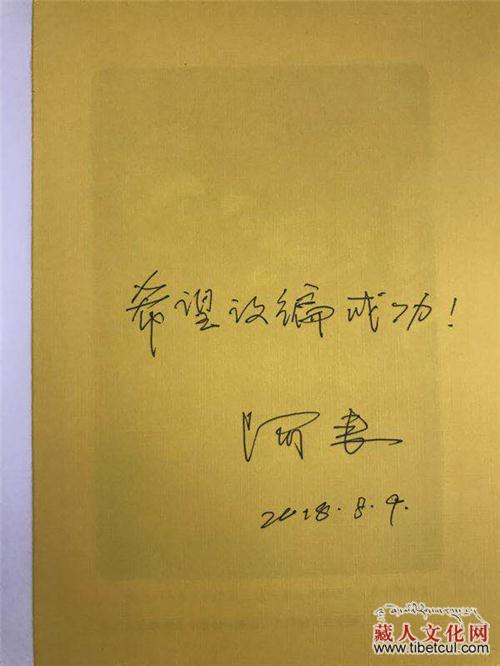 希望改编成功!
阿来
2018.8.9.
藏人文化网
www.tibetcul.com